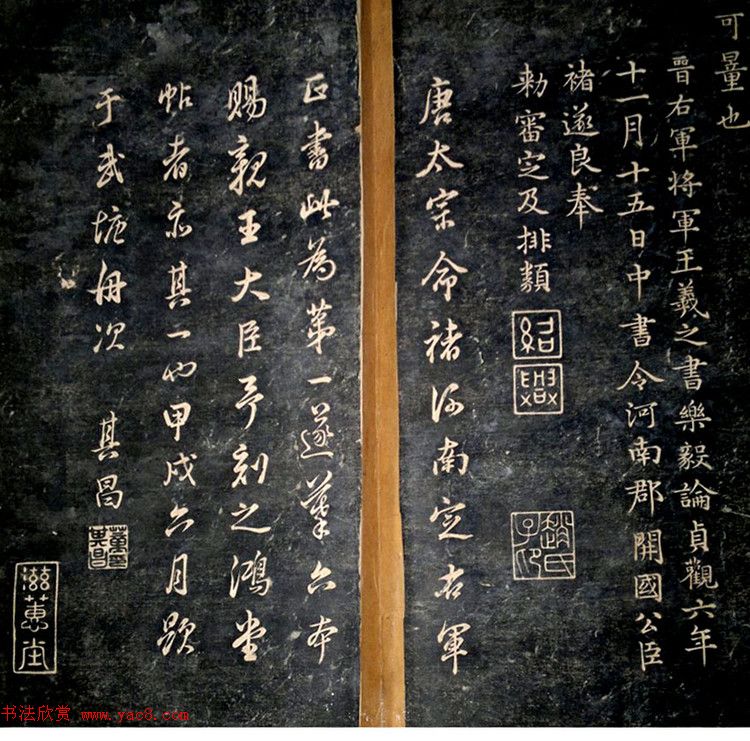 可量也
晉右軍将軍王羲之書樂毅論貞觀六年
十一月十五日中書令河南郡開國公臣
褚遂良奉
勅審定及排類
紹
興
趙氏
子印
唐太宗命褚河南定右軍
正書此為第一遂摹六本
賜親王大臣予刻之鴻堂
帖者亦其一也甲戌六月題
于武塘舟次 其昌
董
其昌
滋蕙堂
书法欣赏 www.yac8.com